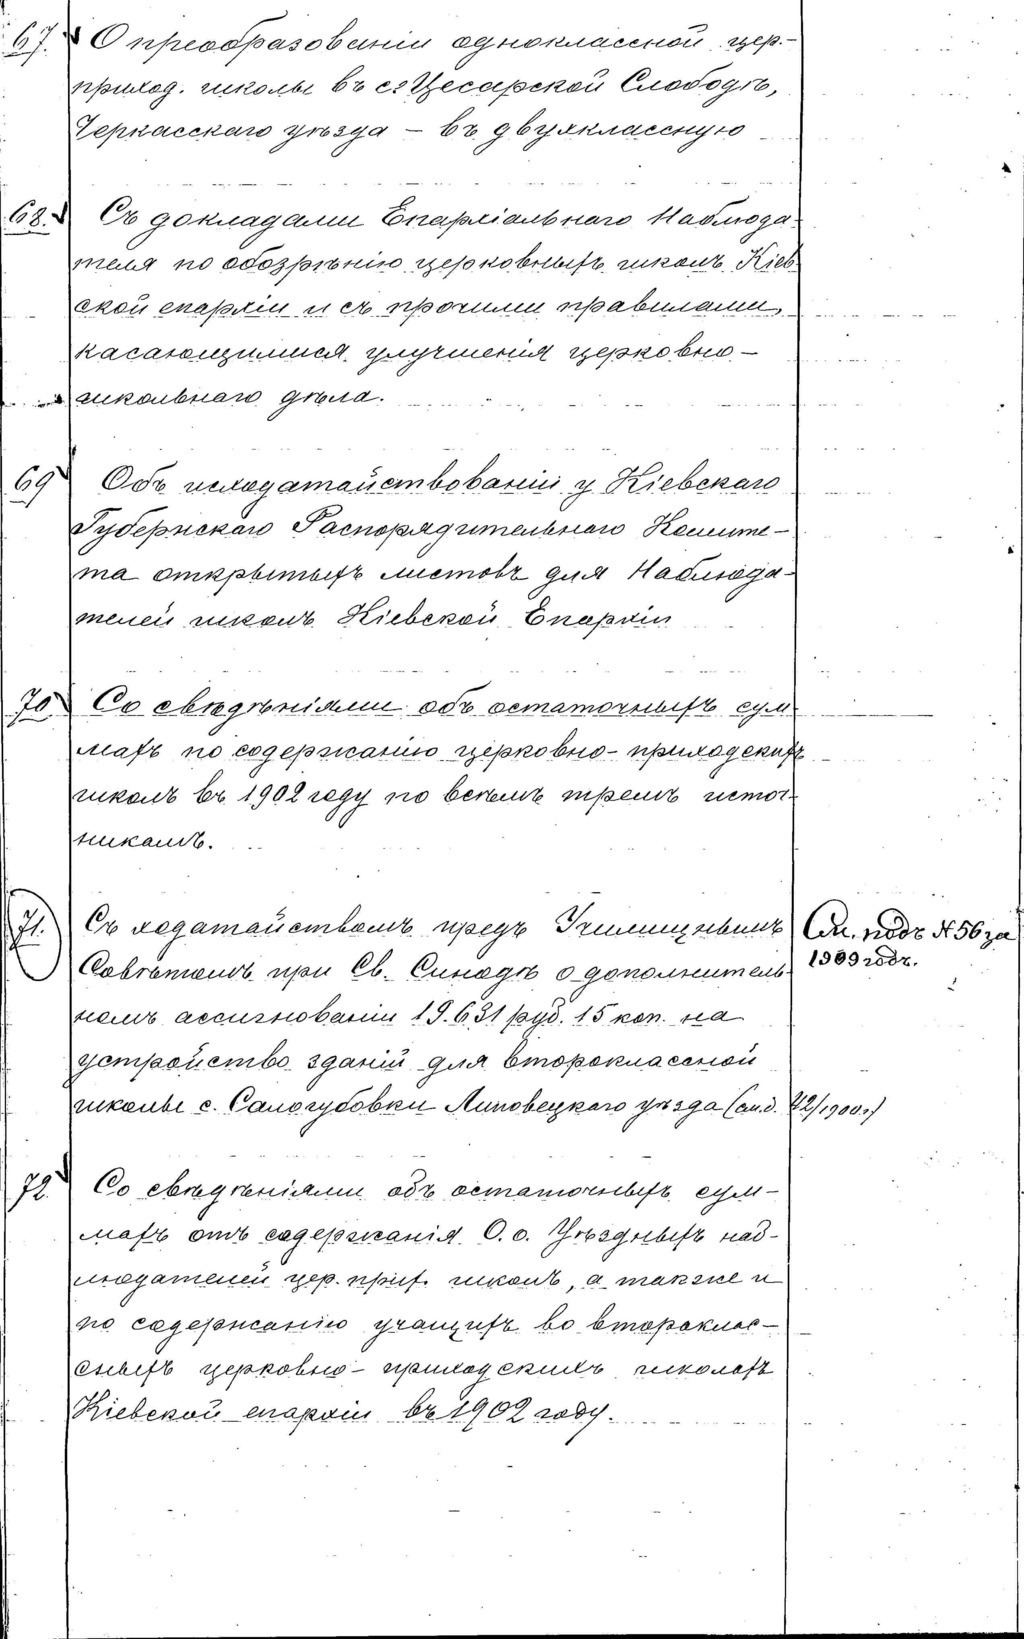 67. О преобразованіи одноклассной цер.-
приход. школы въ с. Цесарской Слободѣ,
Черкасскаго уѣзда – въ двухклассную
68. Съ докладами Епархіальнаго Наблюда-
теля по обозрѣнію церковныхъ школъ Кіев-
ской епархіи и съ прочими правилами,
касающимися улучшенія церковно-
школьнаго дѣла.
69 Объ исходатайствованіи у Кіевскаго
Губернскаго Распорядительнаго Комите-
та открытыхъ листовъ для Наблюда-
телей школъ Кіевской Епархіи
70 Со свѣдѣніями объ остаточныхъ сум-
махъ по содержанію церковно-приходскихъ
школъ въ 1902 году по всѣмъ тремъ источ-
никамъ.
71. Съ ходатайствомъ предъ Училищнымъ
Совѣтомъ при Св. Синодѣ о дополнитель-
номъ ассигнованіи 19.631 руб. 15 коп. на
устройство зданій для второклассной
школы с. Сологубовки Липовецкаго уѣзда (см. д. 72/1900 г)
См. подъ № 56 за
1909 годъ.
72. Со свѣдѣніями объ остаточныхъ сум-
махъ отъ содержанія О.о. Уѣздныхъ наб-
людателей цер. прих. школъ, а также и
по содержанію учащихъ во второклас-
сныхъ церковно-приходскихъ школахъ
Кіевской епархіи въ 1902 году.